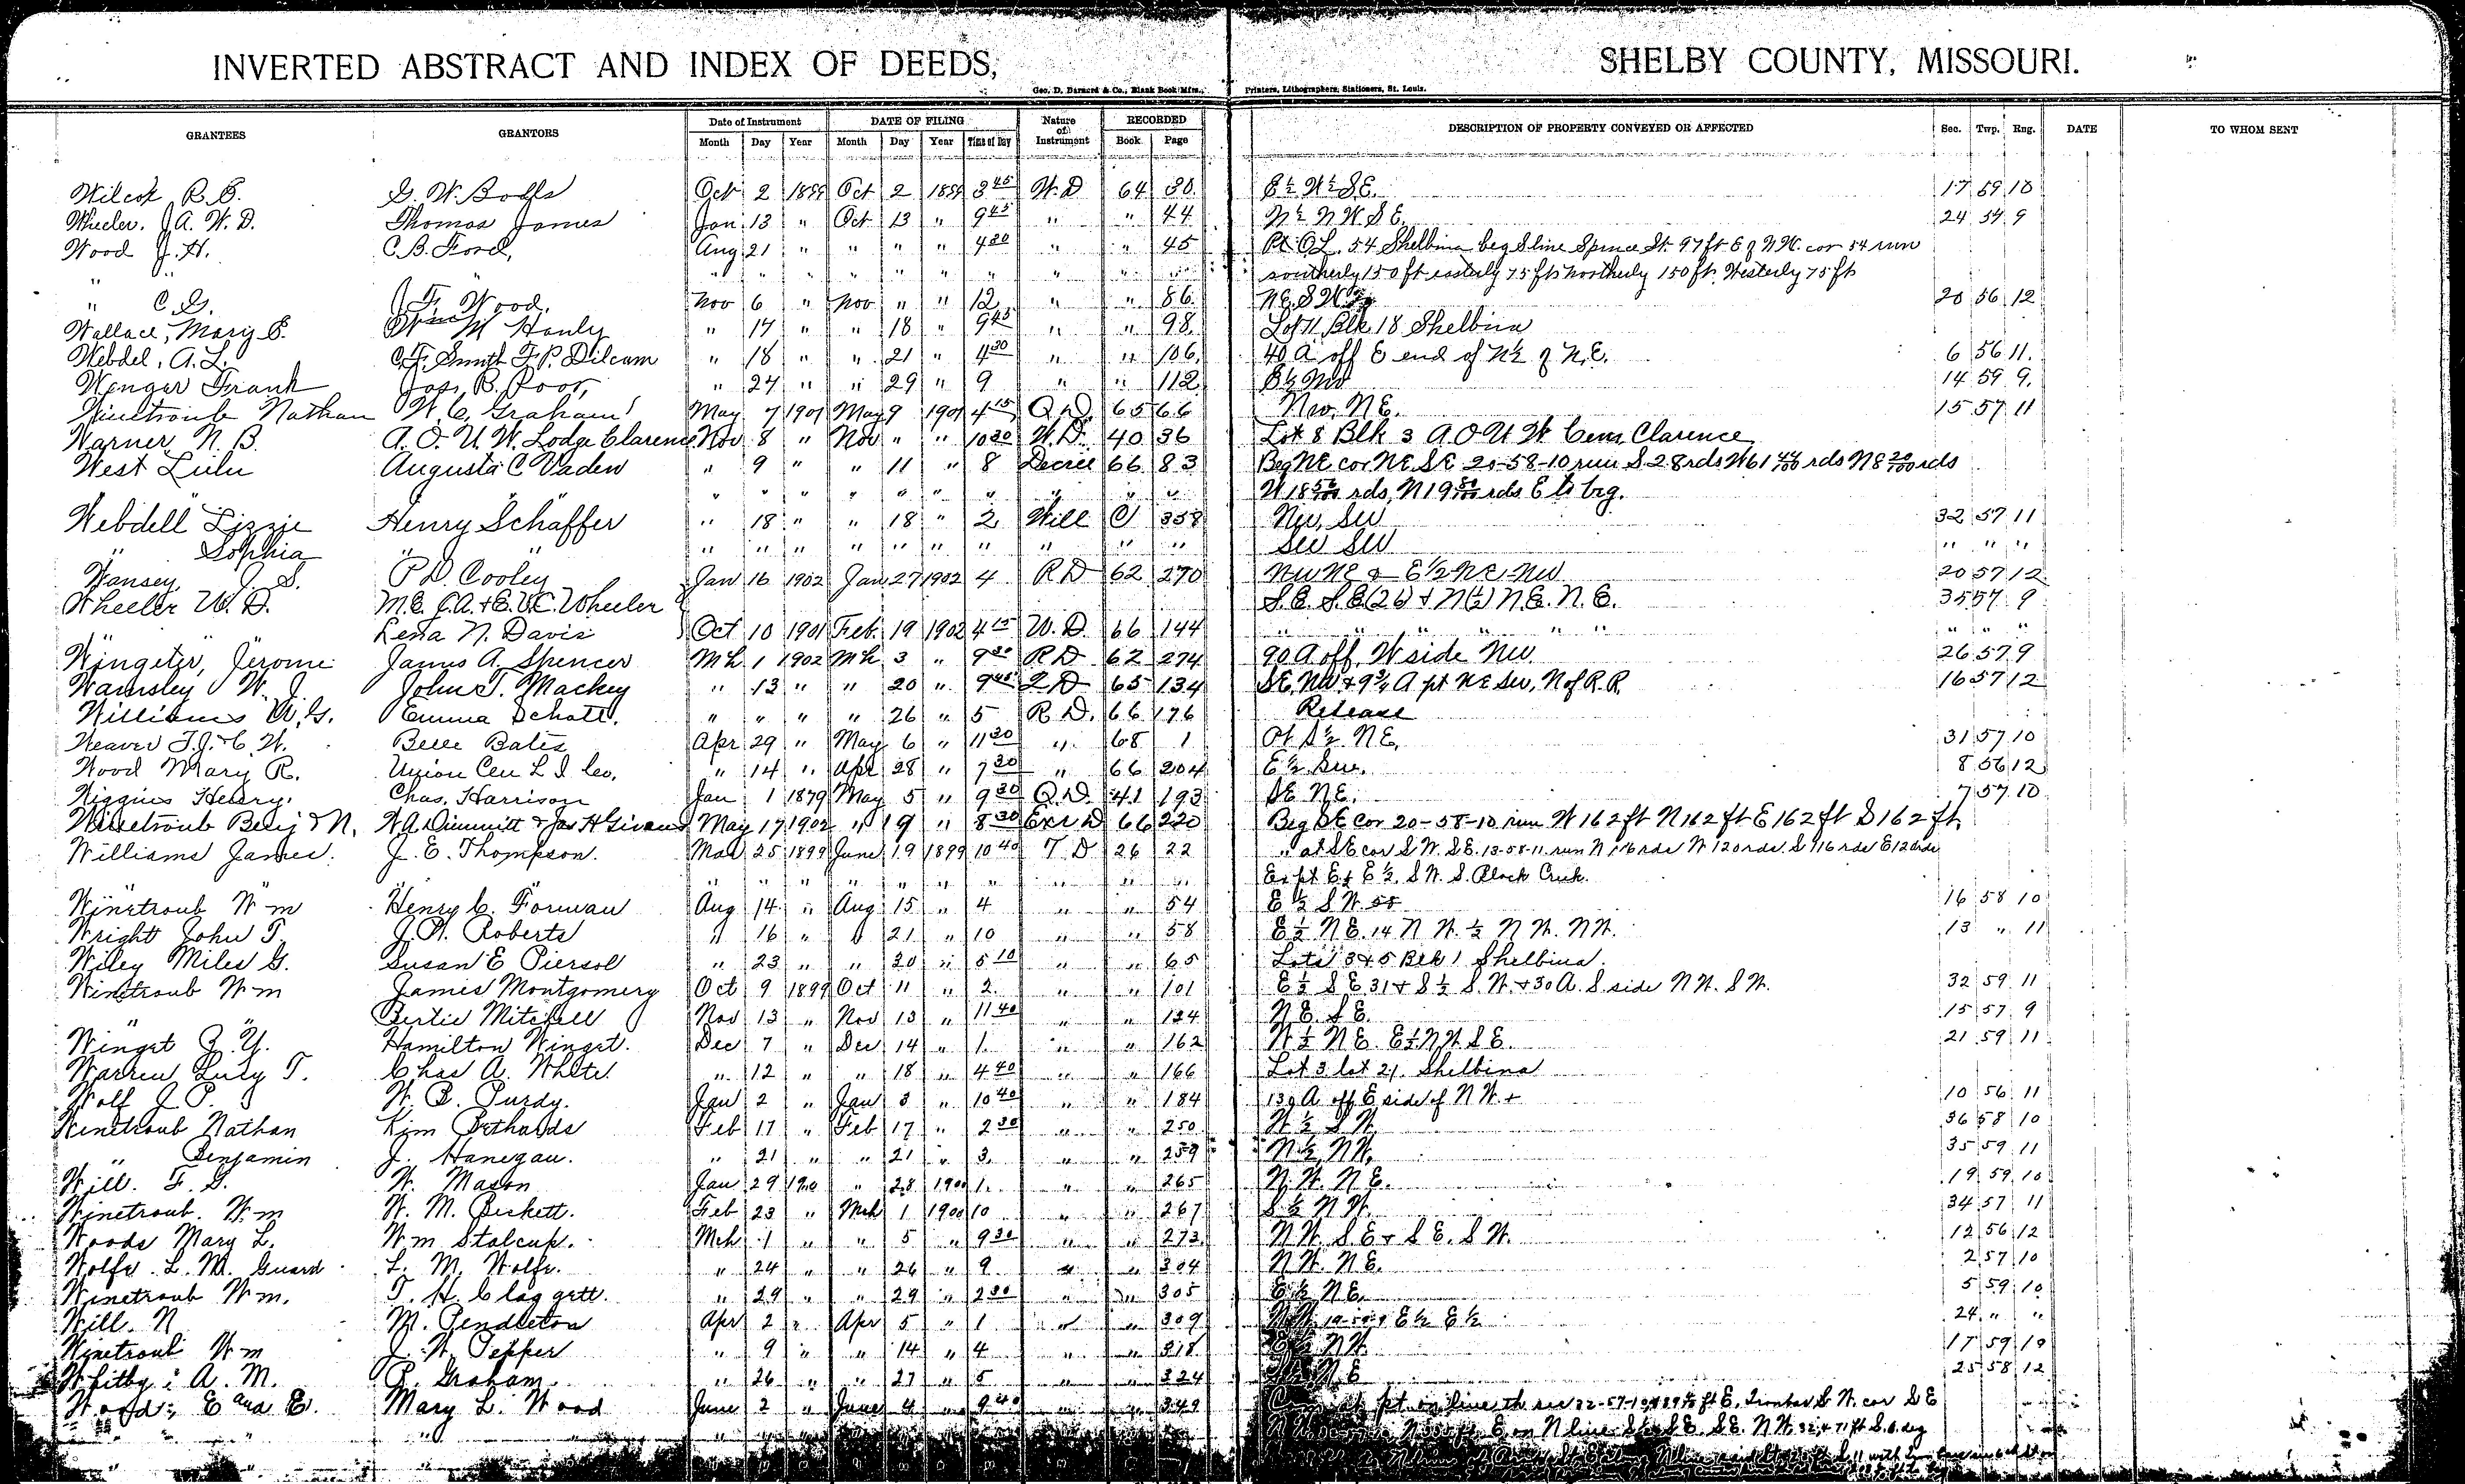 INVERTED ABSTRACT AND INDEX OF DEEDS, SHELBY COUNTY, MISSOURI.
Geo. D. Barnard & Co., Blank Book Mfrs., Printers, Lithographers, Stationers, St. Louis.
GRANTEES GRANTORS Date of Instrument DATE OF FILING Nature of Instrument RECORDED DESCRIPTION OF PROPERTY CONVEYED OR AFFECTED Sec. Twp. Rng. DATE TO WHOM SENT
Month Day Year Month Day Year Time of Day Book Page
Wilcox R. E. G. W. Bodls Oct 2 1899 Oct 2 1899 3 45 W. D 64 30 E½ W½ S.E. 17 59 10
Wheeler, J. A. W. D. Thomas James Jan 13 " Oct 13 " 9 45 " " 44 N½ N W. S E. 24 59 9
Wood J. H. C. B. Ford, Aug 21 " " " " 4 30 " " 45 Pt O.L. 54 Shelbina beg S line Spruce St. 97 ft E of N W. cor 54 run
" " " " " " " " " " " southerly 150 ft easterly 75 ft northerly 150 ft. Westerly 75 ft
" C. G. J. F. Wood. Nov 6 " Nov " " 12 " " 86 N E. S W. 20 56 12
Wallace, Mary E. Wm M Hanly " 17 " " 18 " 9 45 " " 98 Lot 11 Blk 18 Shelbina
Webdel, A. L. C. F. Smith F. P. Dilcam " 18 " " 21 " 4 30 " " 106 40 A off E end of N½ of N.E. 6 56 11
Wenger Frank Jos. B. Poor, " 24 " " 29 " 9 " " 112 E½ NW 14 59 9
Winetroub Nathan W. C. Graham May 7 1901 May 9 1901 4 15 Q D 65 66 NW. N E. 15 57 11
Warner N. B. A. O. U. W. Lodge Clarence Nov 8 " Nov " " 10 30 W. D. 40 36 Lot 8 Blk 3 A O U W Cem. Clarence
West Lulu Augusta C Vaden " 9 " " 11 " 8 Decree 66 83 Beg NE cor NE SE 20-58-10 run S 28 rds W 61 44/100 rds N 8 20/100 rds
" " " " " " " " " " W 18 56/100 rds, N 19 80/100 rds E to beg.
Webdell Lizzie Henry Schaffer " 18 " " 18 " 2 Will C 358 NW, SW 32 57 11
" Sophia " " " " " " " " " " " " SW SW " " "
Wansey, J. S. P. D. Cooley Jan 16 1902 Jan 27 1902 4 R D 62 270 NW NE & E½ NE NW 20 57 12
Wheeler W. D. M. E. J. A. & E. V. C. Wheeler S. E. S. E (26) & N (½) N. E. N. E. 35 57 9
" " Lena N. Davis Oct 10 1901 Feb. 19 1902 4 15 W. D. 66 144 " " " " " " " " "
Wingeter, Jerome James A. Spencer Mh 1 1902 Mh 3 " 9 30 R D 62 274 90 A off W side NW. 26 57 9
Wamsley W. J. John T. Mackey " 13 " " 20 " 9 45 Q D 65 134 SE, NW & 9¾ A pt NE SW, N of R. R. 16 57 12
Williams W. G. Emma Schott. " " " " 26 " 5 R D. 66 176 Release
Weaver T. J. & C. W. Belle Bates Apr 29 " May 6 " 11 30 " 68 1 Pt S½ NE, 31 57 10
Wood Mary R. Union Cen L I Co. " 14 " Apr 28 " 7 30 " 66 204 E½ SW. 8 56 12
Wiggins Henry. Chas. Harrison Jan 1 1879 May 5 " 9 30 Q. D. 41 193 SE NE. 7 57 10
Winetroub Benj & N. W. A. Dimmitt & Jas H Givens May 17 1902 " 19 " 8 30 Exr D 66 220 Beg SE Cor 20-58-10 run W 162 ft N 162 ft E 162 ft S 162 ft
Williams James. J. E. Thompson. Mar 25 1899 June 19 1899 10 40 T D 26 22 " at SE cor S W. S E. 13-58-11 run N 116 rds W 120 rds. S 116 rds E 120 rds
" " " " " " " " " " " Except E½ E½ S W. S. Black Creek.
Winetroub Wm Henry C. Forman Aug 14 " Aug 15 " 4 " " 54 E½ S W. 16 58 10
Wright John T. J. W. Roberts " 16 " " 21 " 10 " " 58 E½ N E. 14 N W. ½ N W. N W. 13 " 11
Wiley Miles G. Susan E Piersol " 23 " " 30 " 5 10 " " 65 Lots 3 & 5 Blk 1 Shelbina.
Winetroub Wm James Montgomery Oct 9 1899 Oct 11 " 2 " " 101 E½ S E. 31 & S½ S. W. & 30 A. S side N W. S W. 32 59 11
" " Bertie Mitchell Nov 13 " Nov 13 " 11 40 " " 134 N E. S E. 15 57 9
Winget Z. Y. Hamilton Winget. Dec 7 " Dec 14 " 1 " " 162 W½ N E. E½ N W S E. 21 59 11
Warren Lucy T. Chas A. White. " 12 " " 18 " 4 40 " " 166 Lot 3 lot 21. Shelbina
Wolf J. P. W. B. Purdy. Jan 2 " Jan 3 " 10 40 " " 184 139 A off E side of N W. + 10 56 11
Winetroub Nathan Kim Bethards Feb 17 " Feb 17 " 2 30 " " 250 W½ S W 36 58 10
" Benjamin J. Hanegan. " 21 " " 21 " 3 " " 259 N½ N W. 35 59 11
Will. F. G. W. Mason Jan 29 1900 " 28 1900 1 " " 265 N. W. N E. 19 59 10
Winetroub. Wm W. M. Bickett. Feb 23 " Mch 1 1900 10 " " 267 S½ N W. 34 57 11
Woods Mary L. Wm Stalcup. Mch 1 " " 5 " 9 30 " " 273 N W. S E & S E. S W. 12 56 12
Wolfe L. M. Guard L. M. Wolfe. " 24 " " 26 " 9 " " 304 N W. N E. 2 57 10
Winetroub Wm. T. H. Claggett. " 29 " " 29 " 2 30 " " 305 E½ N E. 5 59 10
Will. N M. Pendleton Apr 2 " Apr 5 " 1 " " 309 E½ E½ 24 " "
Winetroub Wm J. W. Pepper " 9 " " 14 " 4 " " 318 E½ N W. 17 59 10
Whitby A. M. P. Graham. " 26 " " 27 " 5 " " 324 N E 25 58 12
Woods E and E. Mary L. Wood June 2 " June 4 " 9 40 " " 349 pt on line th sec 32-57-10 ft E. from S W. cor S E
" " " E on N line S½ S E. S E. N W. 32 & 71 ft S.